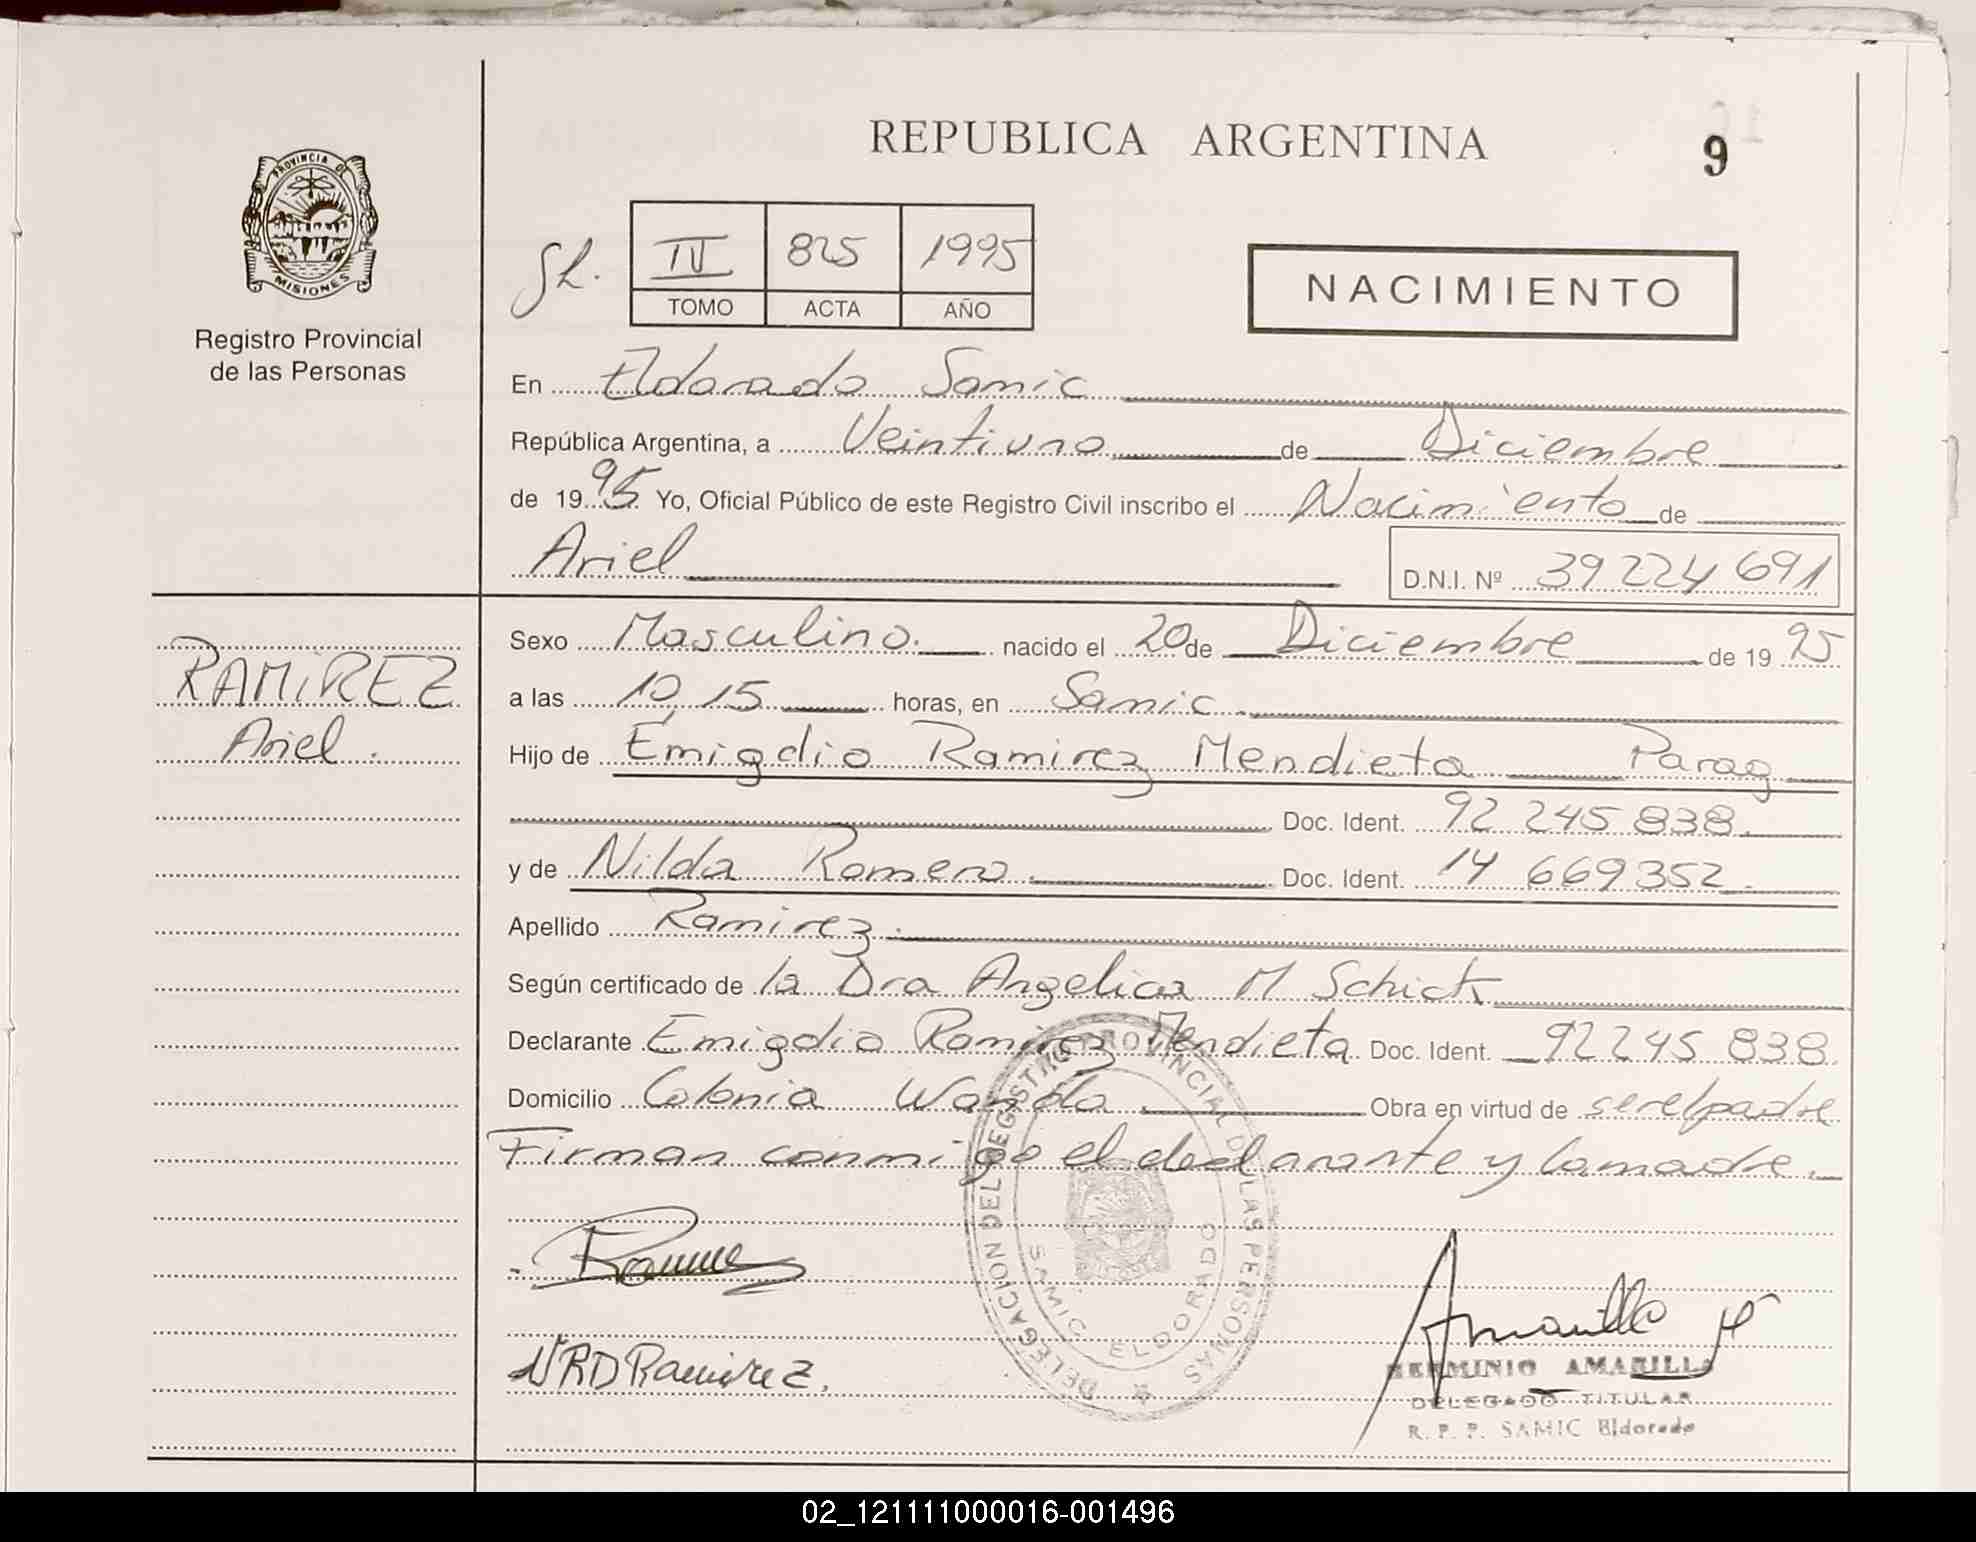 REPUBLICA ARGENTINA
9
PROVINCIA DE
MISIONES
Registro Provincial
de las Personas
IV 825 1995
TOMO ACTA AÑO
NACIMIENTO
En Eldorado Samic
República Argentina, a Veintiuno de Diciembre
de 1995 Yo, Oficial Público de este Registro Civil inscribo el Nacimiento de
Ariel D.N.I. Nº 39224691
RAMIREZ
Ariel.
Sexo Masculino. nacido el 20 de Diciembre de 1995
a las 10,15 horas, en Samic
Hijo de Emigdio Ramirez Mendieta Parag
Doc. Ident. 92 245 838.
y de Nilda Romero. Doc. Ident. 14 669352.
Apellido Ramirez.
Según certificado de la Dra Angelica M Schick
Declarante Emigdio Ramirez Mendieta Doc. Ident. 92245 838.
Domicilio Colonia Wanda Obra en virtud de ser el padre
Firman conmigo el declarante y la madre.
DELEGACION DEL REGISTRO PROVINCIAL DE LAS PERSONAS
SAMIC ELDORADO
NRD Ramirez.
Amarilla H
HERMINIO AMARILLA
DELEGADO TITULAR
R. P. P. SAMIC Eldorado
02_121111000016-001496